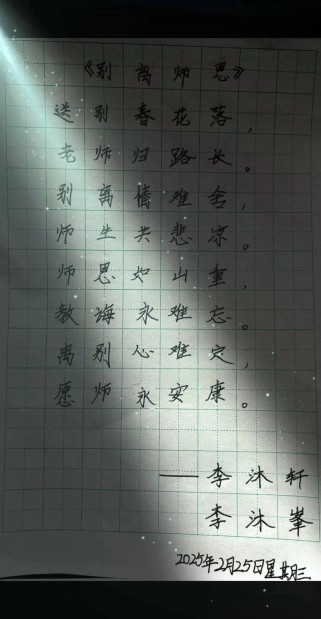 《别离师恩》
送别春花落，
老师归路长。
别离情难舍，
师生共悲凉。
师恩如山重，
教诲永难忘。
离别心难定，
愿师永安康。
——李沐轩
李沐峯
2025年2月25日星期三